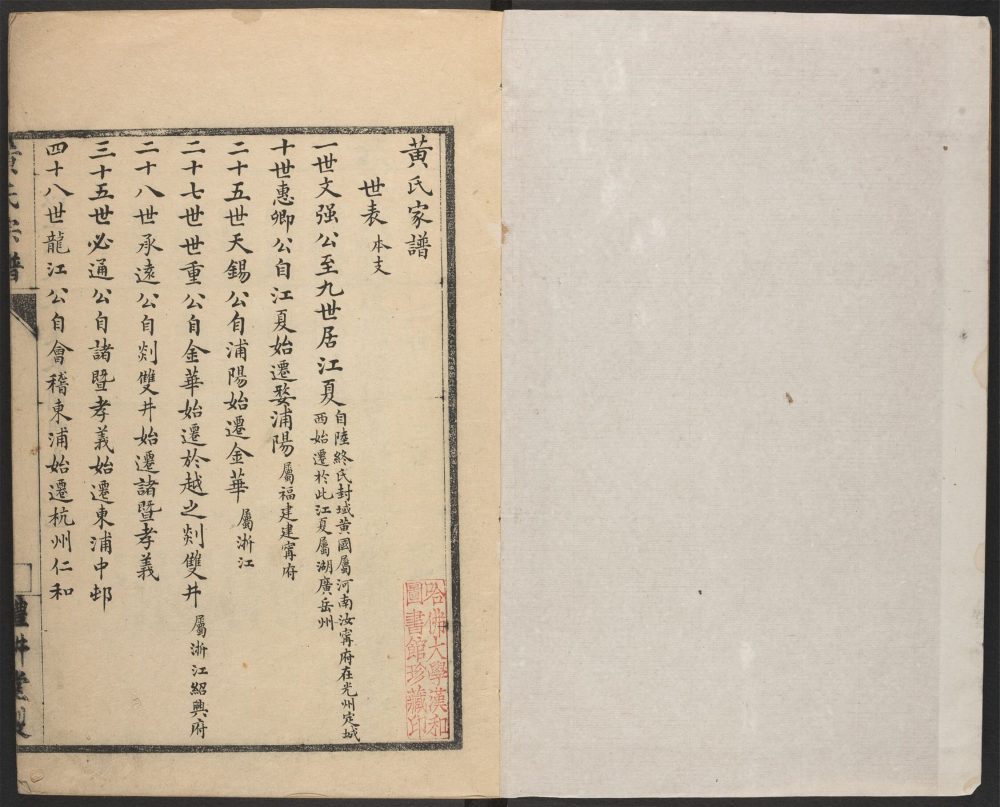 黃氏家譜
世表 本支
一世文强公至九世居江夏 自陸終氏封域黄國屬河南汝寗府在光州定城
西始遷於此江夏屬湖廣岳州
十世惠卿公自江夏始遷婺浦陽 屬福建建寗府
二十五世天錫公自浦陽始遷金華 屬浙江
二十七世世重公自金華始遷於越之剡雙井 屬浙江紹興府
二十八世承遠公自剡雙井始遷諸暨孝義
三十五世必通公自諸暨孝義始遷東浦中邨
四十八世龍江公自會稽東浦始遷杭州仁和
黃氏宗譜
哈佛大學漢和
圖書館珍藏印